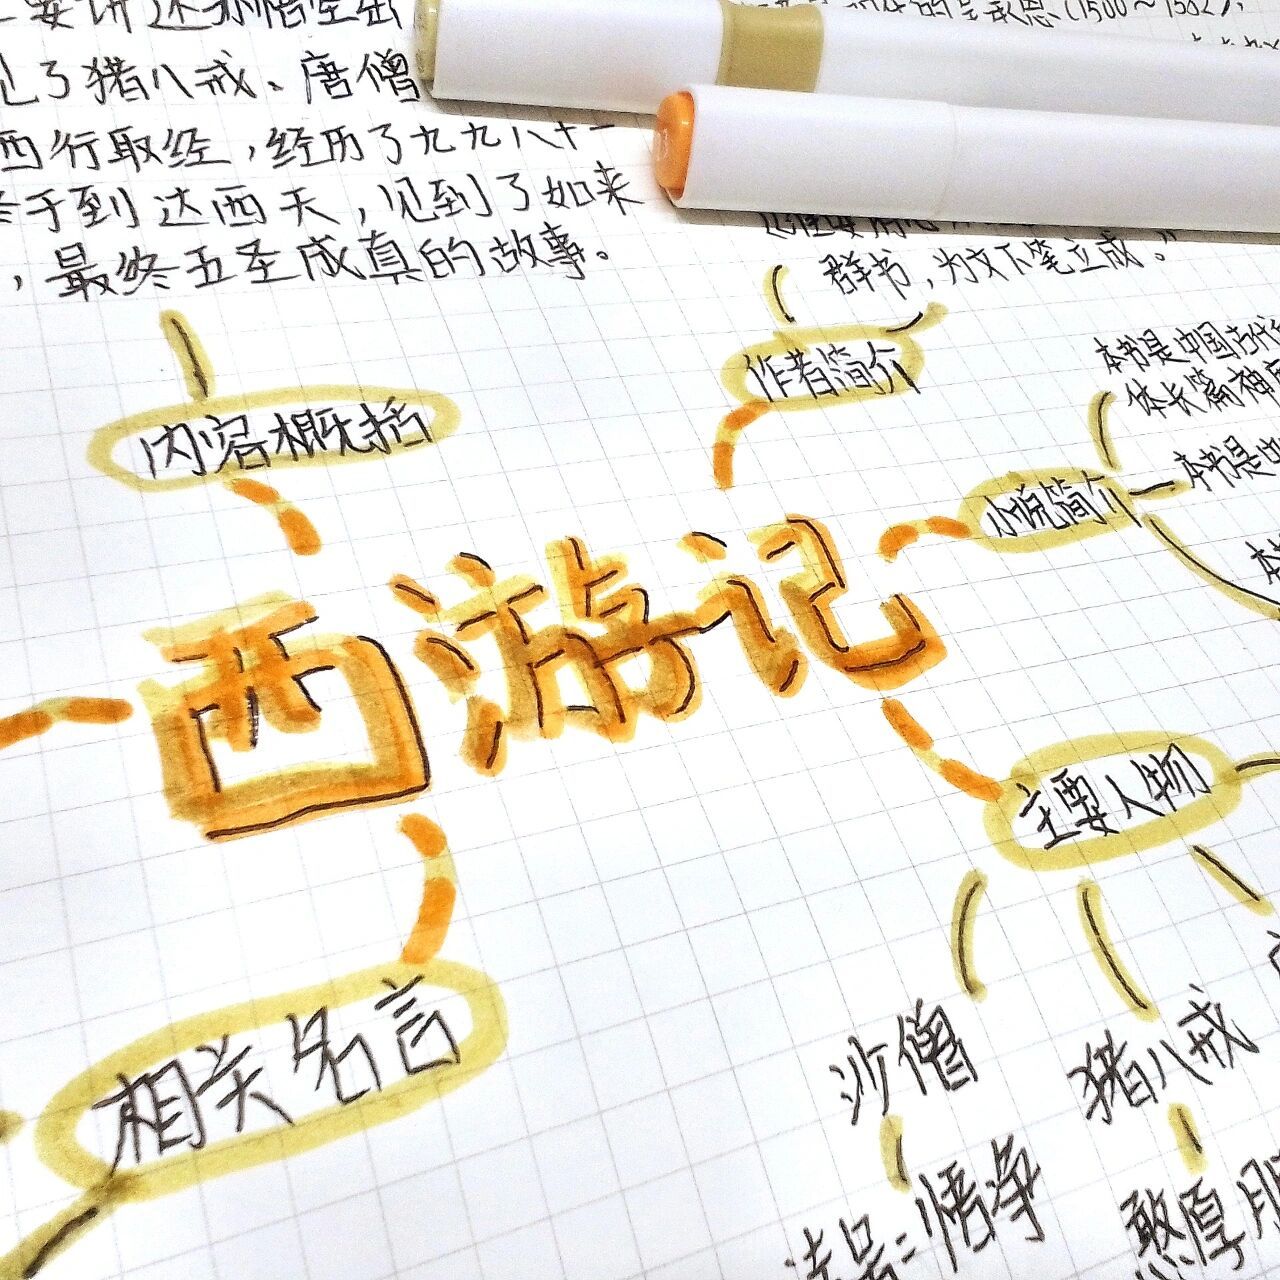 要讲述孙悟空出
见了猪八戒、唐僧
西行取经,经历了九九八十一
终于到达西天,见到了如来
,最终五圣成真的故事。
吴承恩(1500~1582),
群书,为文下笔立成。”
作者简介
内容概括
本书是中国古代
体长篇神
小说简介
本书是中
西游记
主要人物
相关名言
沙僧
猪八戒
法号:悟净
憨厚